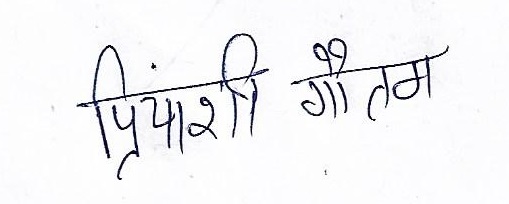 प्रियांशी गौतम